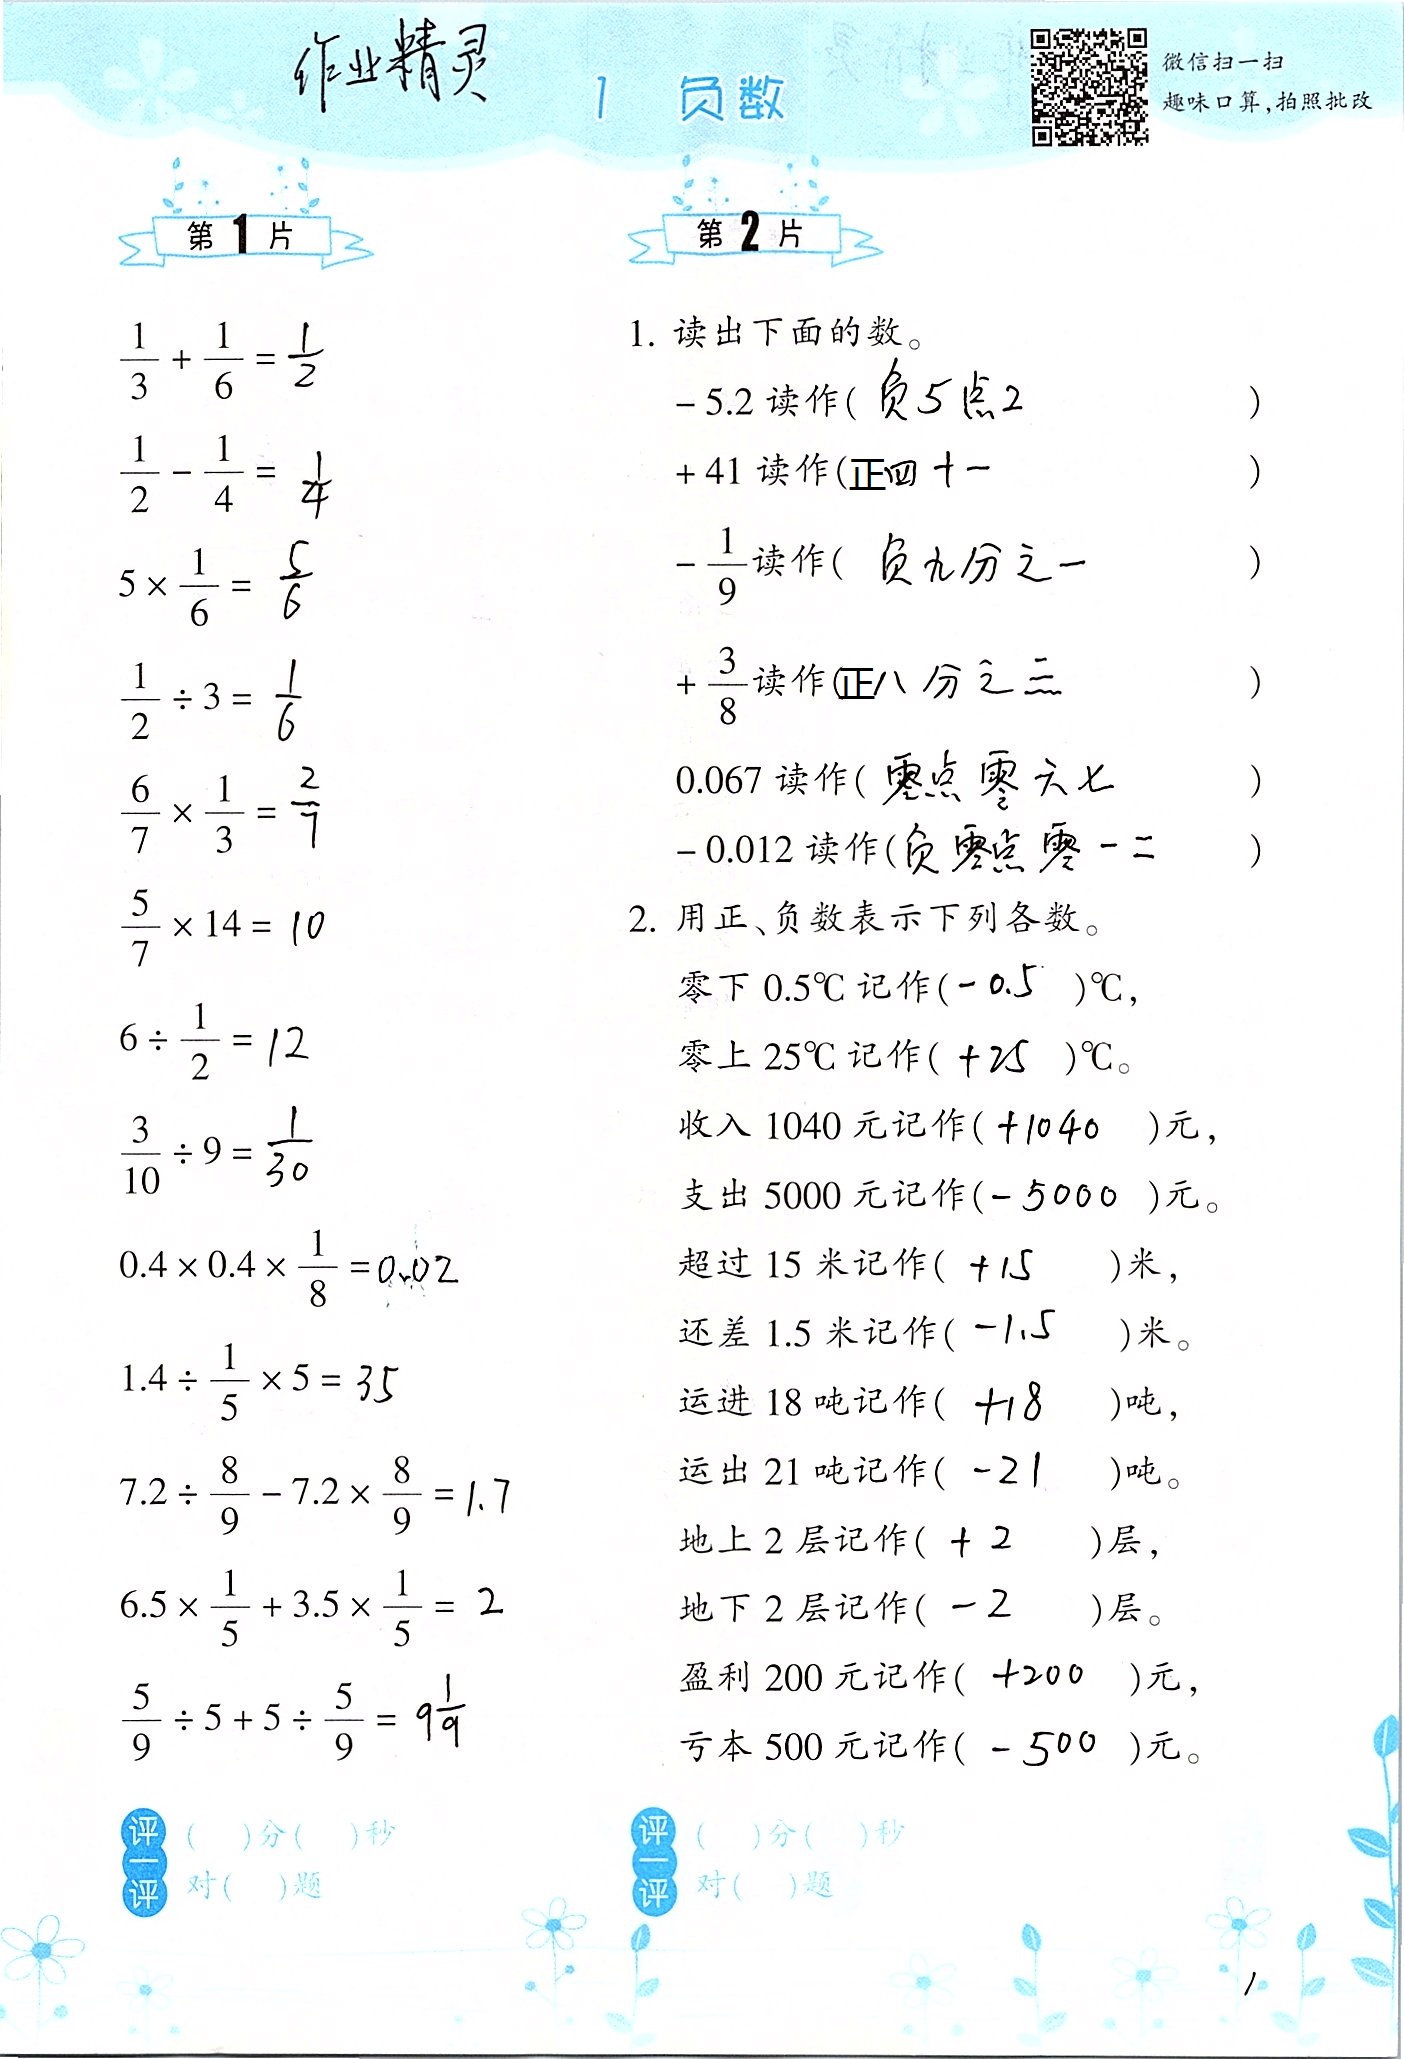 作业精灵
1 负数
微信扫一扫
趣味口算,拍照批改
第1片
1/3 + 1/6 = 1/2
1/2 - 1/4 = 1/4
5 × 1/6 = 5/6
1/2 ÷ 3 = 1/6
6/7 × 1/3 = 2/7
5/7 × 14 = 10
6 ÷ 1/2 = 12
3/10 ÷ 9 = 1/30
0.4 × 0.4 × 1/8 = 0.02
1.4 ÷ 1/5 × 5 = 35
7.2 ÷ 8/9 - 7.2 × 8/9 = 1.7
6.5 × 1/5 + 3.5 × 1/5 = 2
5/9 ÷ 5 + 5 ÷ 5/9 = 9 1/9
评一评
( )分( )秒
对( )题
第2片
1. 读出下面的数。
-5.2 读作(负5点2)
+41 读作(正四十一)
-1/9 读作(负九分之一)
+3/8 读作(正八分之三)
0.067 读作(零点零六七)
-0.012 读作(负零点零一二)
2. 用正、负数表示下列各数。
零下 0.5℃ 记作(-0.5)℃,
零上 25℃ 记作(+25)℃。
收入 1040 元记作(+1040)元,
支出 5000 元记作(-5000)元。
超过 15 米记作(+15)米,
还差 1.5 米记作(-1.5)米。
运进 18 吨记作(+18)吨,
运出 21 吨记作(-21)吨。
地上 2 层记作(+2)层,
地下 2 层记作(-2)层。
盈利 200 元记作(+200)元,
亏本 500 元记作(-500)元。
评一评
( )分( )秒
对( )题
1